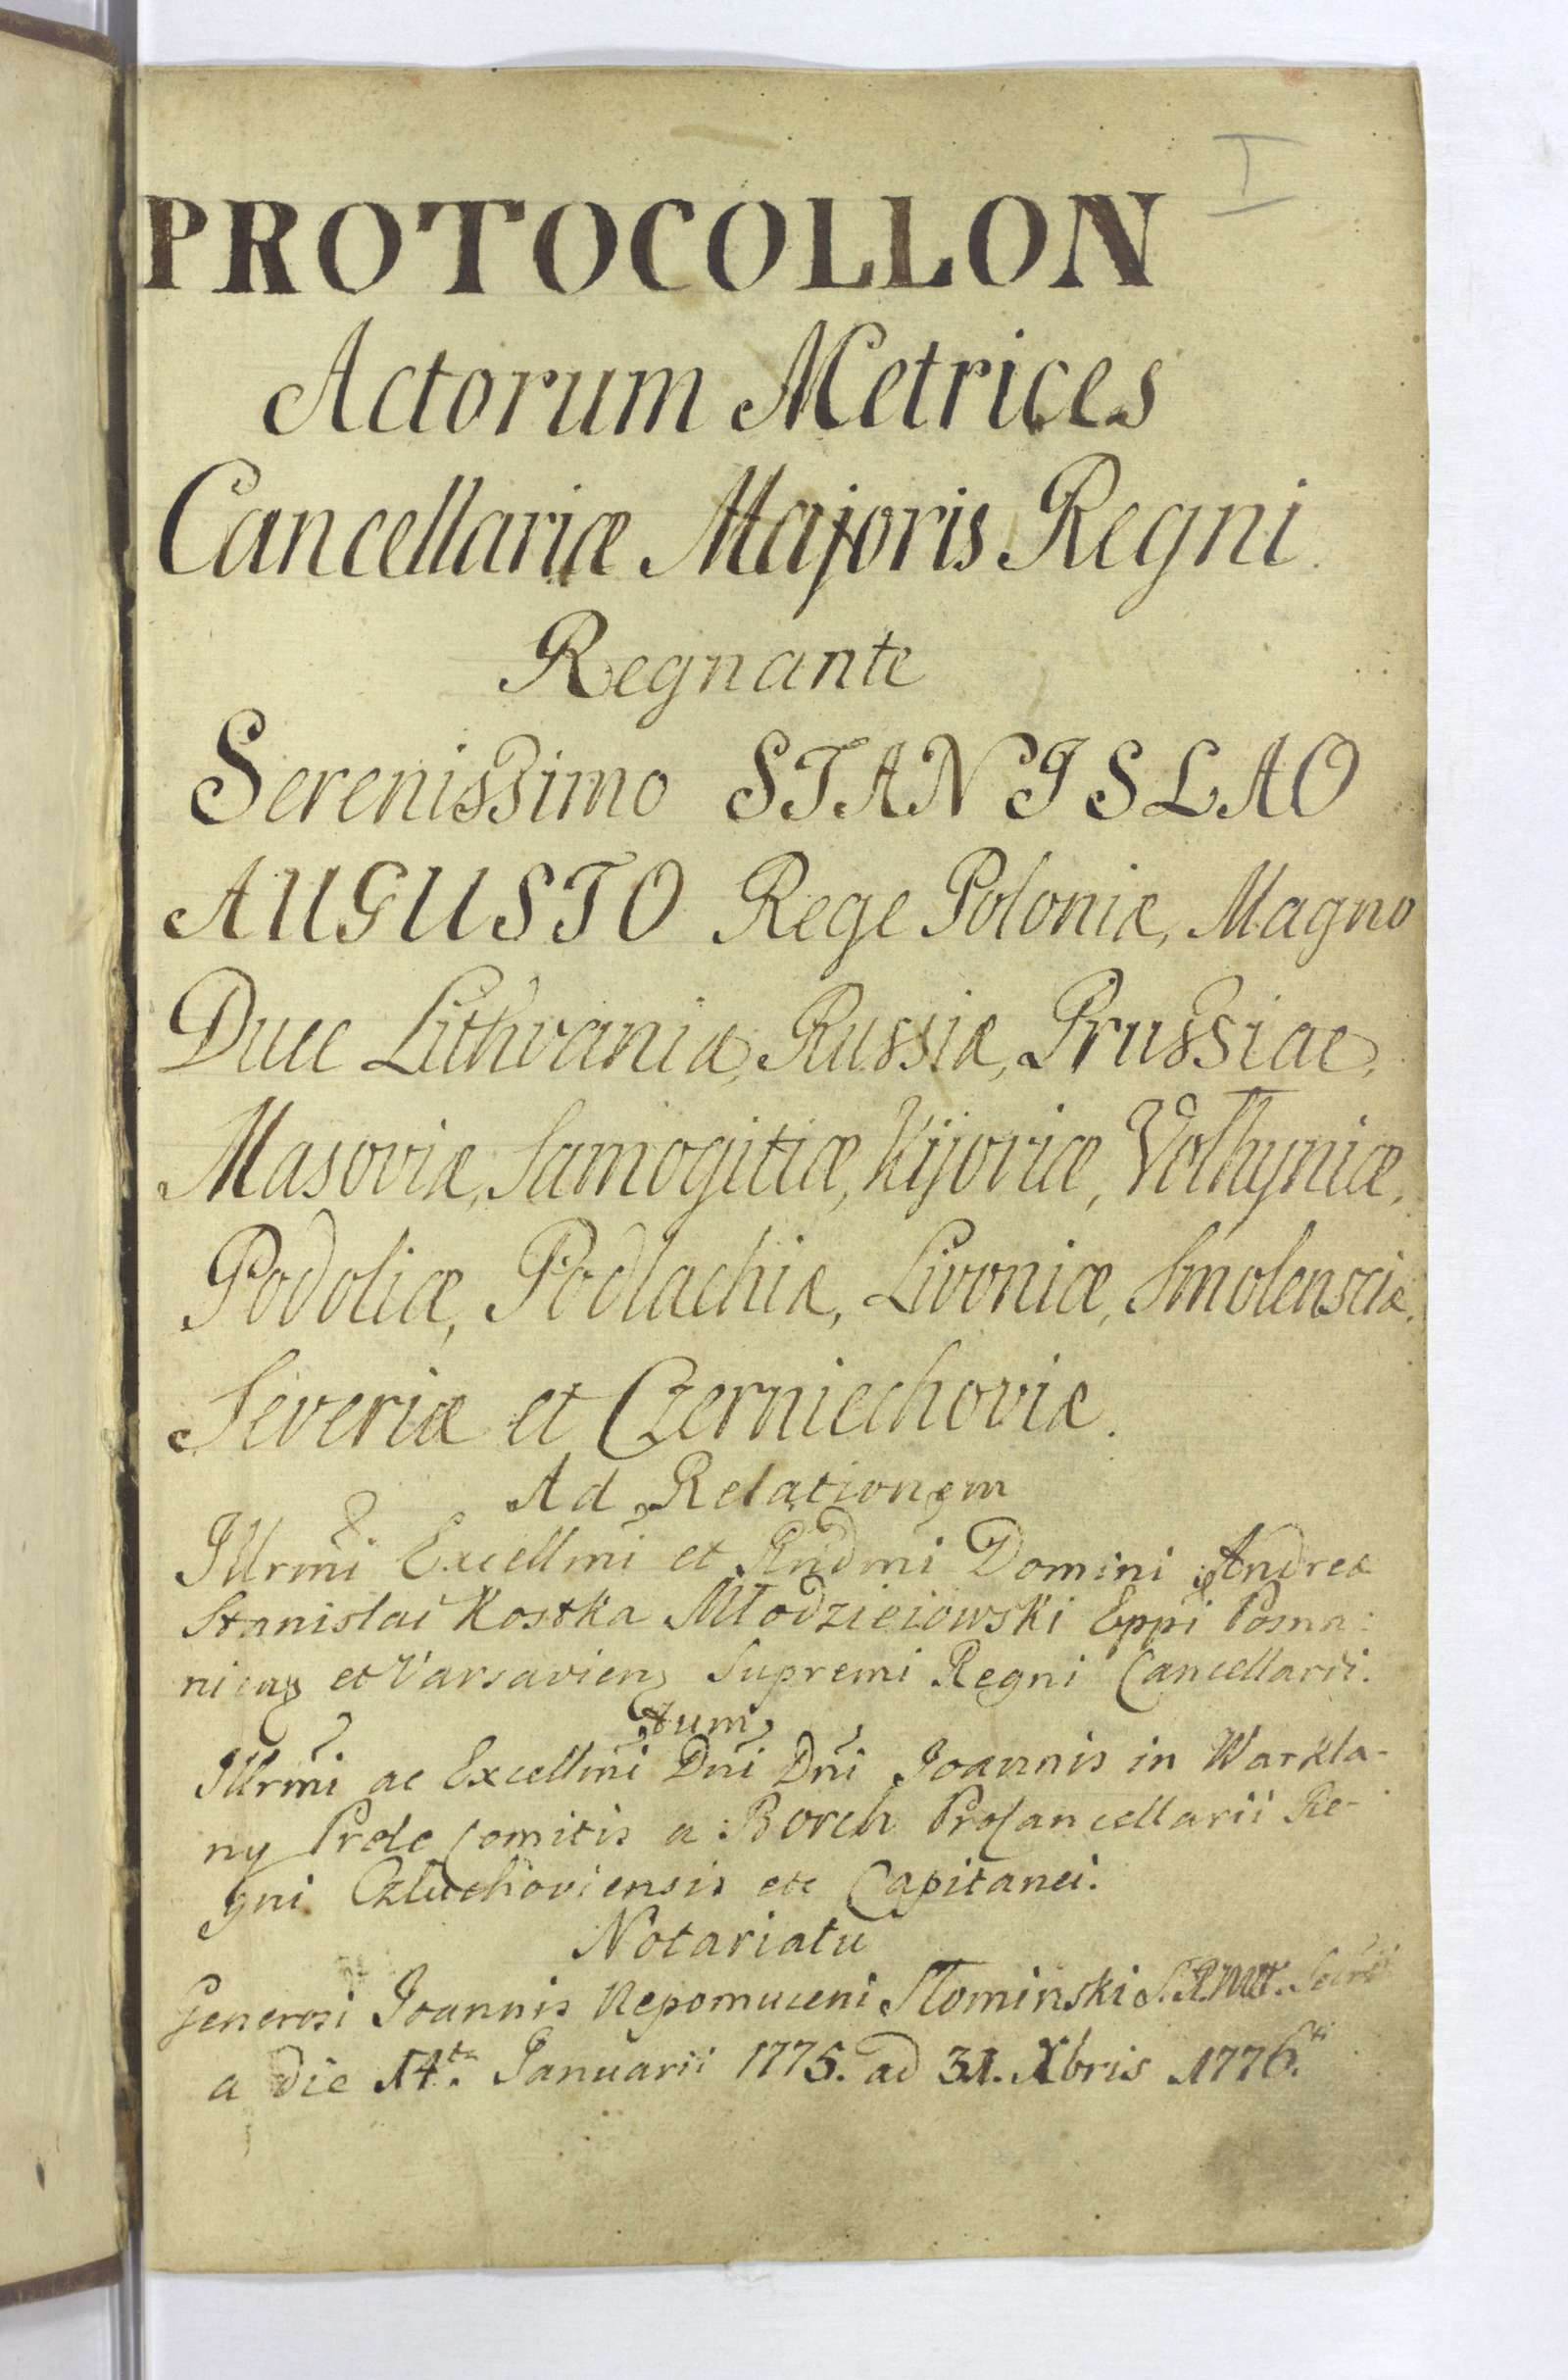 I
PROTOCOLLON
Actorum Metrices
Cancellariæ Majoris Regni.
Regnante
Serenissimo STANISLAO
AUGUSTO Rege Poloniæ, Magno
Duce Lithvaniæ, Russiæ, Prussiae,
Masoviæ, Samogitiæ, Kijoviæ, Volhyniæ,
Podoliæ, Podlachiæ, Livoniæ, Smolensciæ,
Severiæ et Czerniechoviæ.
Ad Relationem
Illrmi Excellmi et Rndmi Domini Andreæ
Stanislai Kostka Młodzieiowski Eppi Posna:
niens et Varsaviens Supremi Regni Cancellarii.
tum
Illrmi ac Excellmi Dni Dni Joannis in Warkla-
ny Prele Comitis a Borch ProCancellarii Re-
gni Czluchoviensis etc Capitanei.
Notariatu
Generosi Joannis Nepomuceni Słominski
a die 14ta Januarii 1775. ad 31. Xbris 1776ti